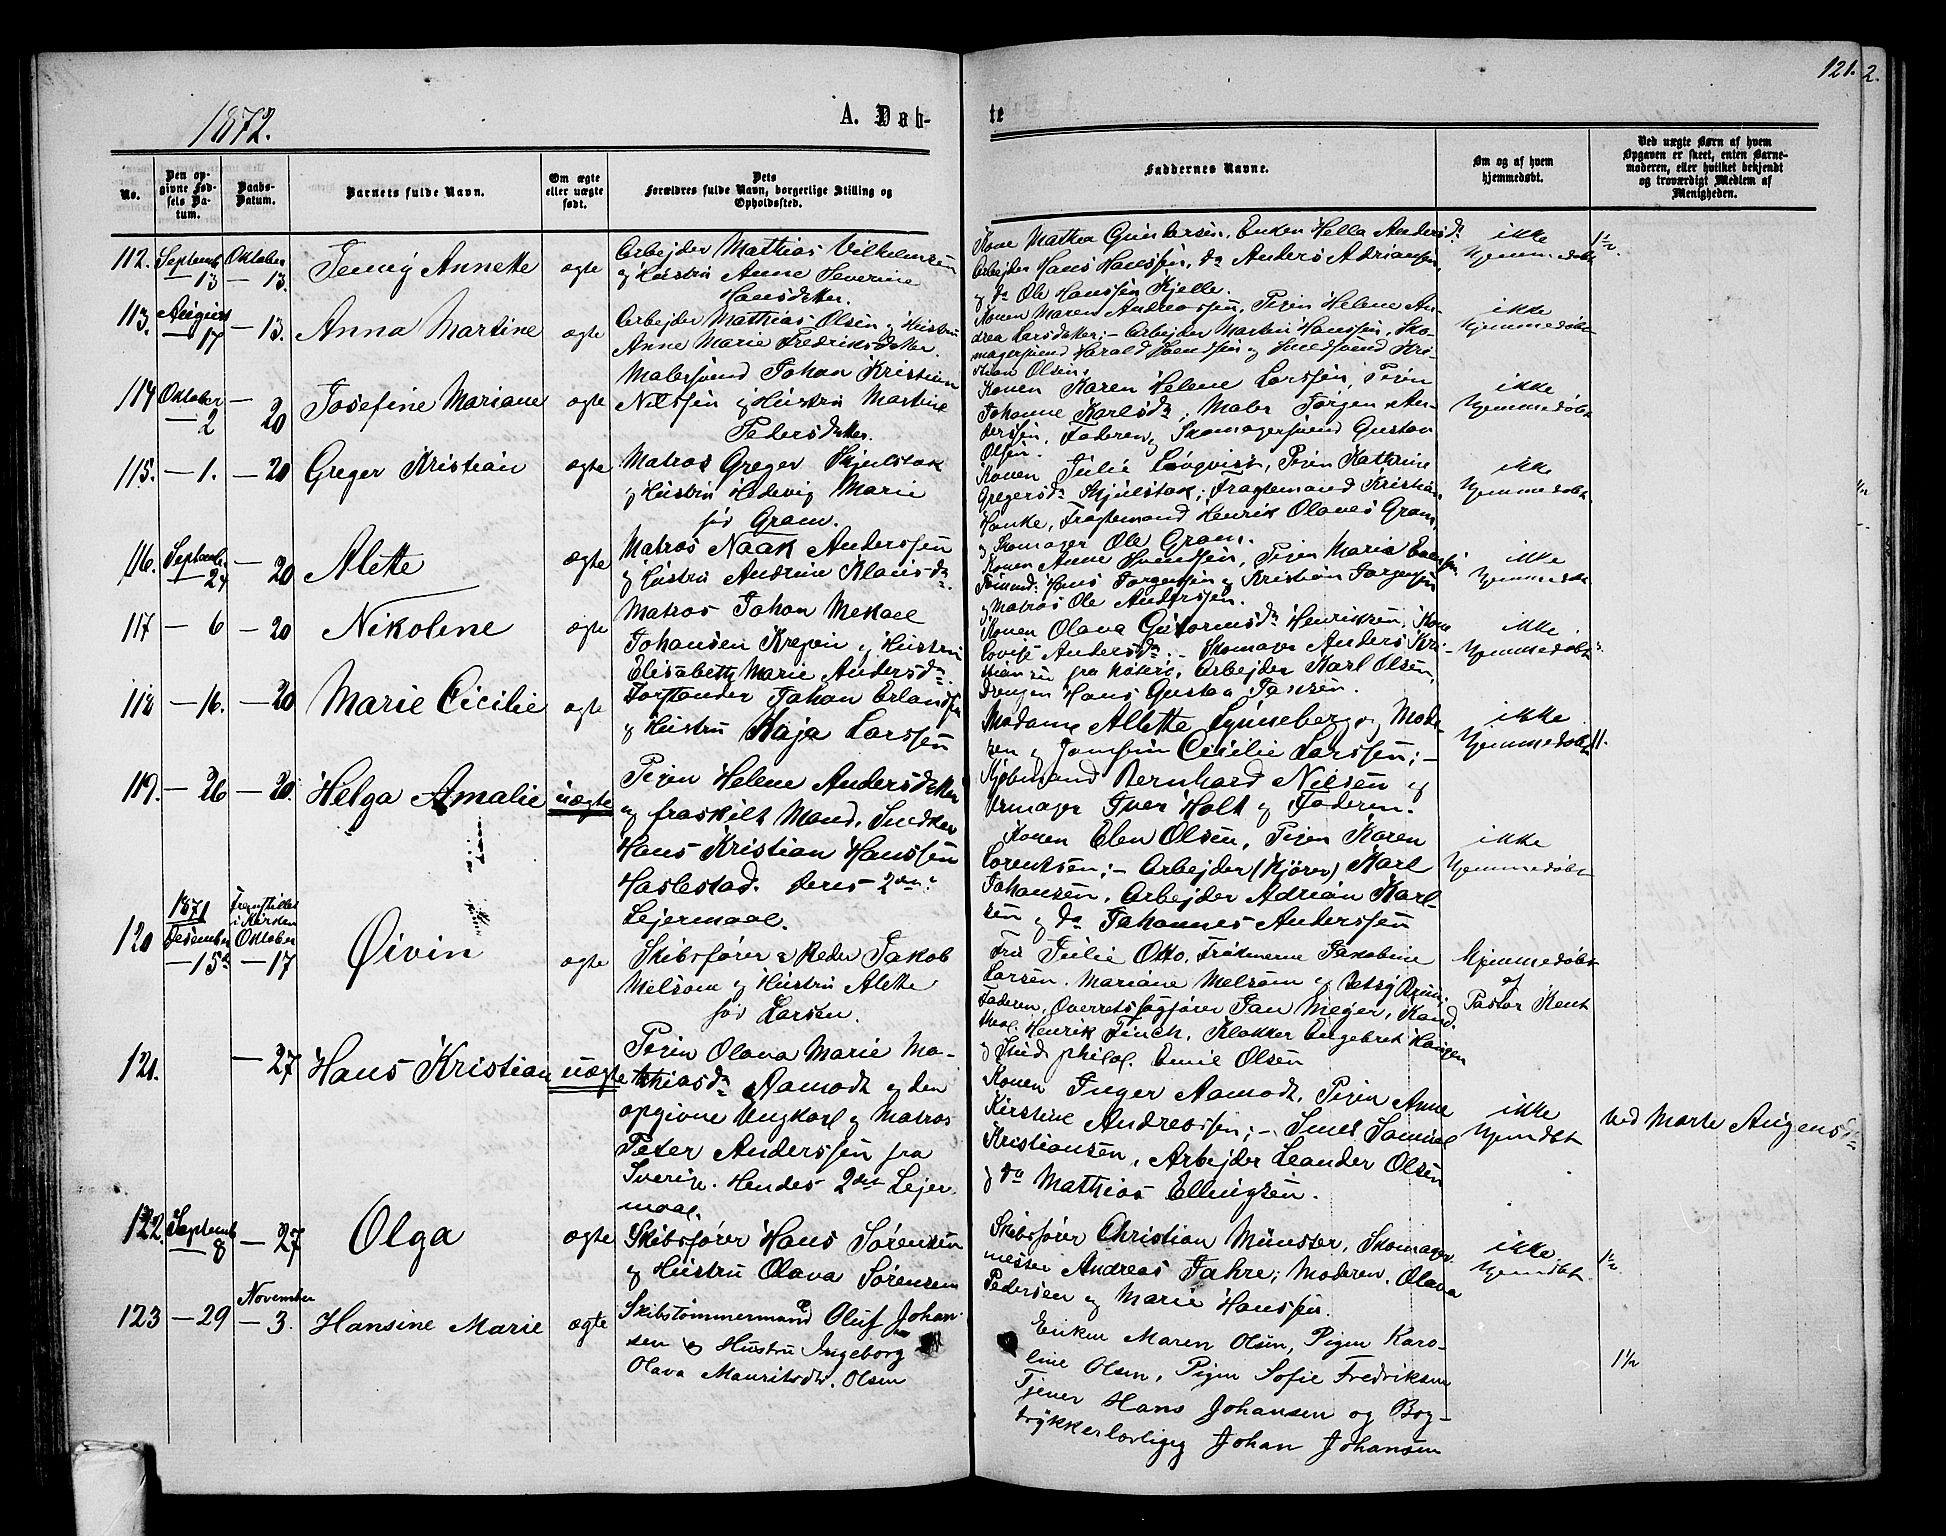 1872.
A. Døb-
te
121. 2.
No.
Den op-
givne Fød-
sels Da-
tum.
Daabs-
Datum.
Barnets fulde Navn.
Om ægte
eller uægte
født.
Dets
Forældres fulde Navn, borgerlige Stilling og
Opholdssted.
Faddernes Navne.
Om og af hvem
hjemmedøbt.
Ved uægte Børn af hvem
Opgaven er skeet, enten Barne-
moderen, eller hvilket bekjendt
og troværdigt Medlem af
Menigheden.
112. Septemb. 13 Oktober 13. Jenny Annette ægte
Arbejder Mathias Vilhelmsen
og Hustru Anne Severine
Hansdatter.
Kone Mathea Guntersen, Enken Hella Andersd.
Arbejder Hans Hanssen, do Anders Adriansen,
og do Ole Hanssen Kjelle.
ikke
hjemmedøbt
1½
113. August 17 — 13. Anna Martine ægte
Arbejder Mathias Olsen og Hustru
Anne Marie Fredriksdatter.
Konen Maren Andreassen, Pigen Helene An-
drea Larsdatter; — Arbejder Martin Hanssen, Sko-
magersvend Harald Svendsen og Smedsvend Kri-
stian Olsen.
ikke
hjemmedøbt
114 Oktober 2 — 20 Josefine Mariane ægte
Malersvend Johan Kristian
Nilssen og Hustru Martine
Pedersdatter.
Konen Karen Helene Larssen, Pigen
Johanne Karlsd; Maler Jørgen An-
derssen, Faderen og Skomagersvend Gustav
Olsen.
ikke
hjemmedøbt
115. — 1. — 20 Greger Kristian ægte
Matros Greger Skjulstak
og Hustru Hedevig Marie
før Gram.
Konen Julie Løvqvist, Pigen Kathrine
Gregersd Skjulstak; Fragtemand Kristian
Hanke, Fragtemand Henrik Olaves Gram,
og Skomager Ole Gram.
ikke
hjemmedøbt.
116. Septemb. 24 — 20 Alette ægte
Matros Naak Anderssen
og Hustru Andrine Klausd.
Konen Anne Svendsen, Pigen Maria
Hans Jørgensen og Kristian Jørgensen
og Matros Ole Anderssen.
ikke
hjemmedøbt
117 — 6 — 20 Nikoline ægte
Matros Johan Mekael
Johansen Krepin og Hustru
Elisabeth Marie Andersd.
Konen Olava Guttormsd Henriksen, Kone
Lovise Andersd. — Skomager Anders Kri-
stiansen fra Nøtterø, Arbejder Karl Olsen,
Drengen Hans Gustav Jansen.
ikke
hjemmedøbt
118 — 16. — 20 Marie Cicilie ægte
Forstander Johan Erlandsen
og Hustru Kaja Larssen
Madame Alette Lynneberg og Mode-
ren og Jomfru Cicilie Larssen; —
Kjøbmand Bernhard Nielsen og
Urmager Iver Holt og Faderen.
ikke
hjemmedøbt
11.
119. — 26 — 20. Helga Amalie uægte
Pigen Helene Andersdatter
og fraskilt Mand, Snedker
Hans Kristian Hanssen
Haslestad. Deres 2den
Lejermaal.
Konen Elen Olsen, Pigen Karen
Lorentsen; — Arbejder (Kjører) Karl
Johansen, Arbejder Adrian Karl-
sen og do Johannes Anderssen
ikke
hjemmedøbt
120 1871 Desember — 15de Fremstillet i Kirken Oktober — 17 Øivin ægte
Skibsfører & Reder Jakob
Melsom og Hustru Alette
før Larsen.
Fru Julie Otto, Frøknerne Jakobine
Larsen, Mariane Melsom og Betsy Brun;
Faderen, Overretssagfører Jan Meyer, Kand.
theol. Henrik Finch, Klokker Engebret Haugen
og Stud. philol. Emil Olsen
hjemmedøbt
af
Pastor Kent
121. — 27 Hans Kristian uægte
Pigen Olava Marie Ma-
thiasd Aamodt og den
opgivne Ungkarl og Matros
Peter Anderssen fra
Sverige. Hendes 2det Lejer-
maal.
Konen Inger Aamodt, Pigen Anne
Kirstine Andreassen; — Smed Samuel
Kristiansen, Arbejder Leander Olsen
og do Mathias Ellingsen.
ikke
hjemdøbt
ved Marte Augensd
122. Septemb. 8 — 27 Olga ægte
Skibsfører Hans Sørensen
og Hustru Olava Sørensen
Skibsfører Christian Münster, Skomager-
mester Andreas Jahre; Moderen, Olava
Pedersen og Marie Hanssen.
ikke
hjemdøbt.
1½
123 — 29 November — 3. Hansine Marie ægte
Skibstømmermand Oluf Johan-
sen og Hustru Ingeborg
Olava Mauritsdtr. Olsen
Enken Maren Olsen, Pigen Karo-
line Olsen, Pigen Sofie Fredriksen
Tjener Hans Johansen og Bog-
trykkerlærling Johan Johansen
1½